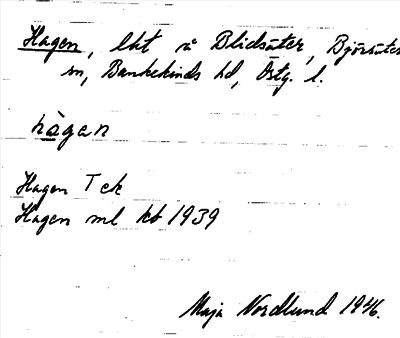 Hagen, lht å Blidsäter, Björsäter
sn, Bankekinds hd, Östg. l.
hàgan
Hagen T ek
Hagen ml kb 1939
Maja Nordlund 1946.